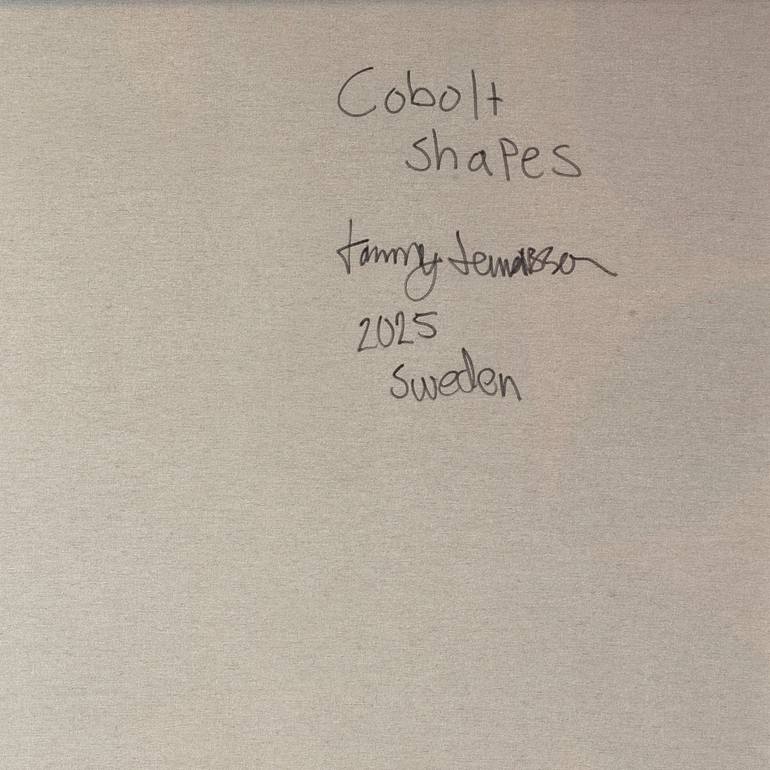 Cobolt
shapes
tammy
2025
Sweden